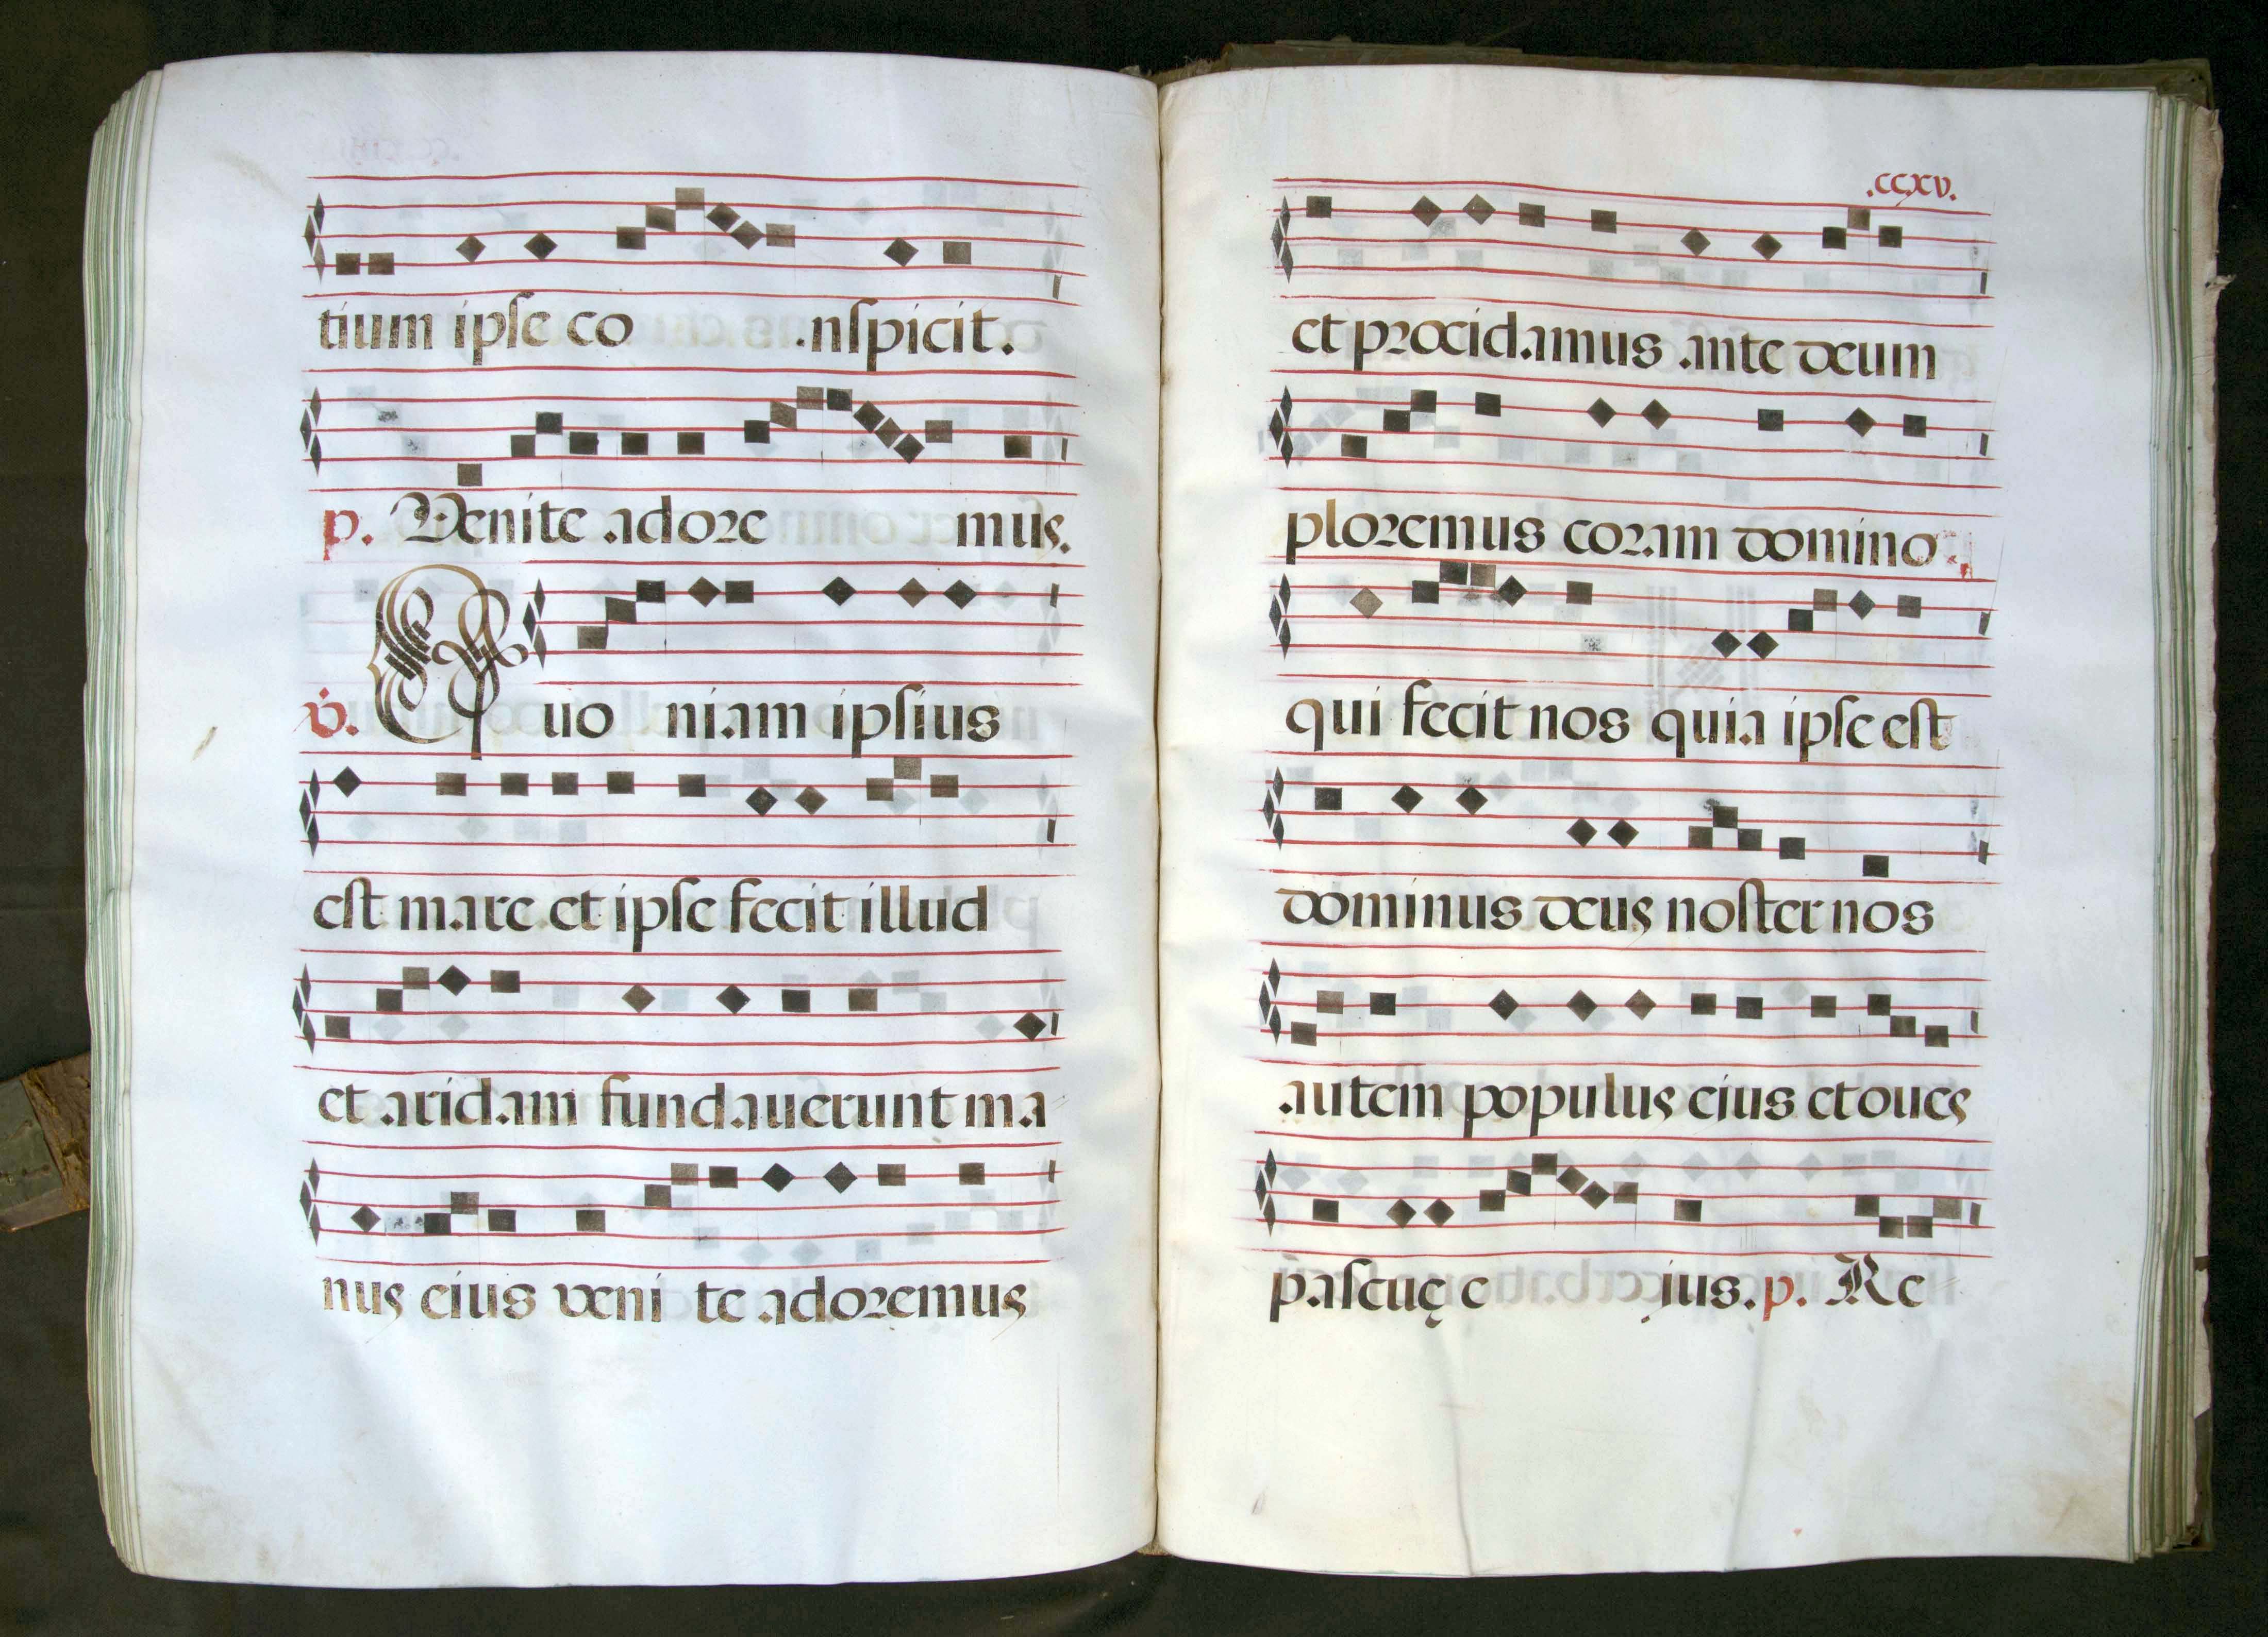 tium ipse co nspicit.
p. Venite adore mus.
v. Quo niam ipsius
est mare et ipse fecit illud
et aridam fundauerunt ma
nus eius veni te adoremus
.ccxv.
et procidamus ante deum
ploremus coram domino.
qui fecit nos quia ipse est
dominus deus noster nos
autem populus eius et oues
pascuę e ius. p. Re